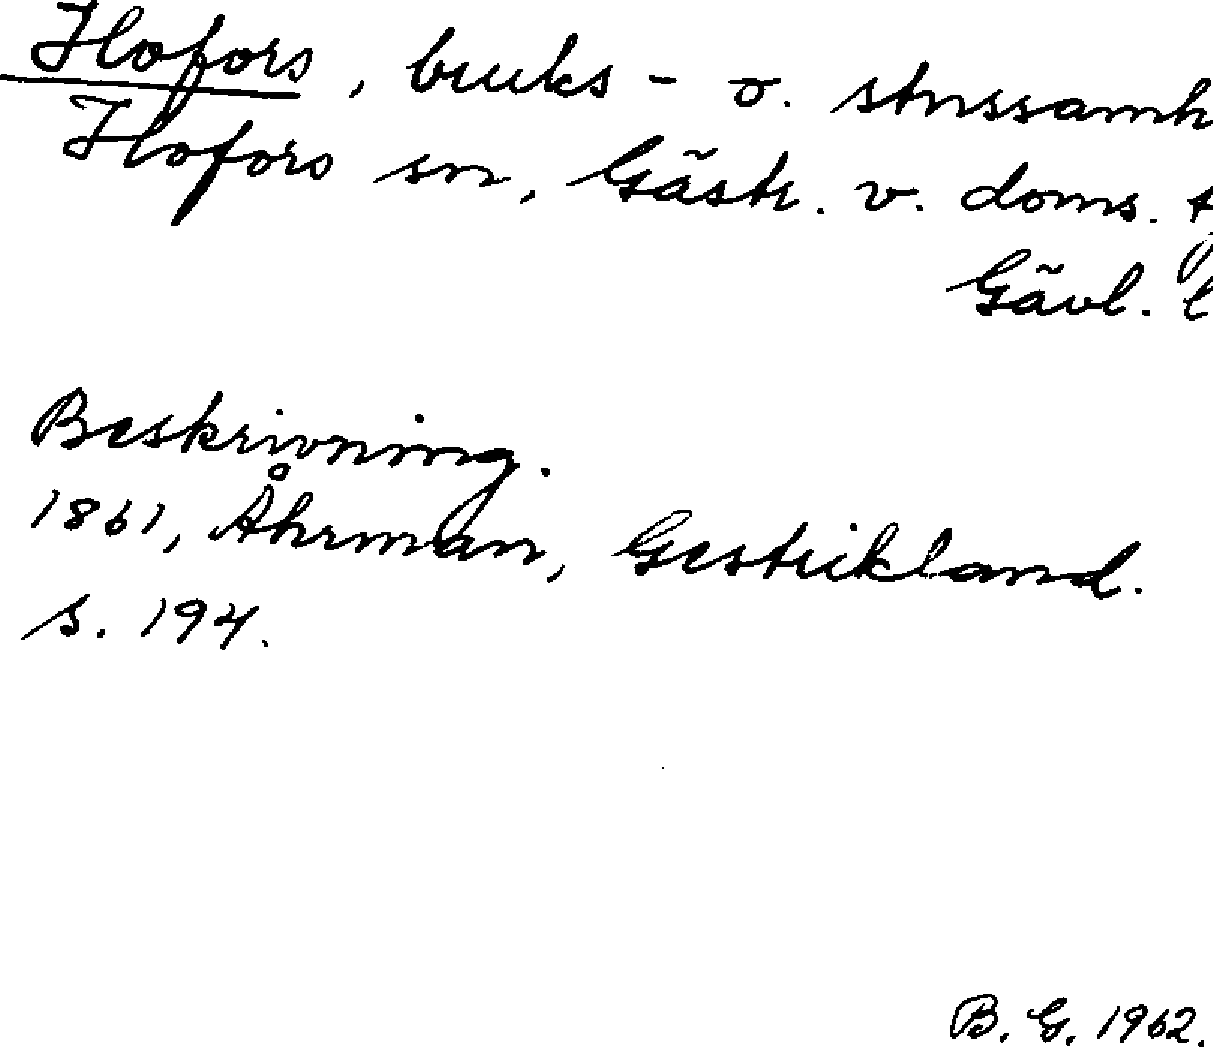 Hofors, bruks- o. stnssamh
Hofors sn, Gästr. v. doms.
Gävl. l
Beskrivning.
1861, Åhrman, Gestrikland.
s. 194.
B. G. 1962.